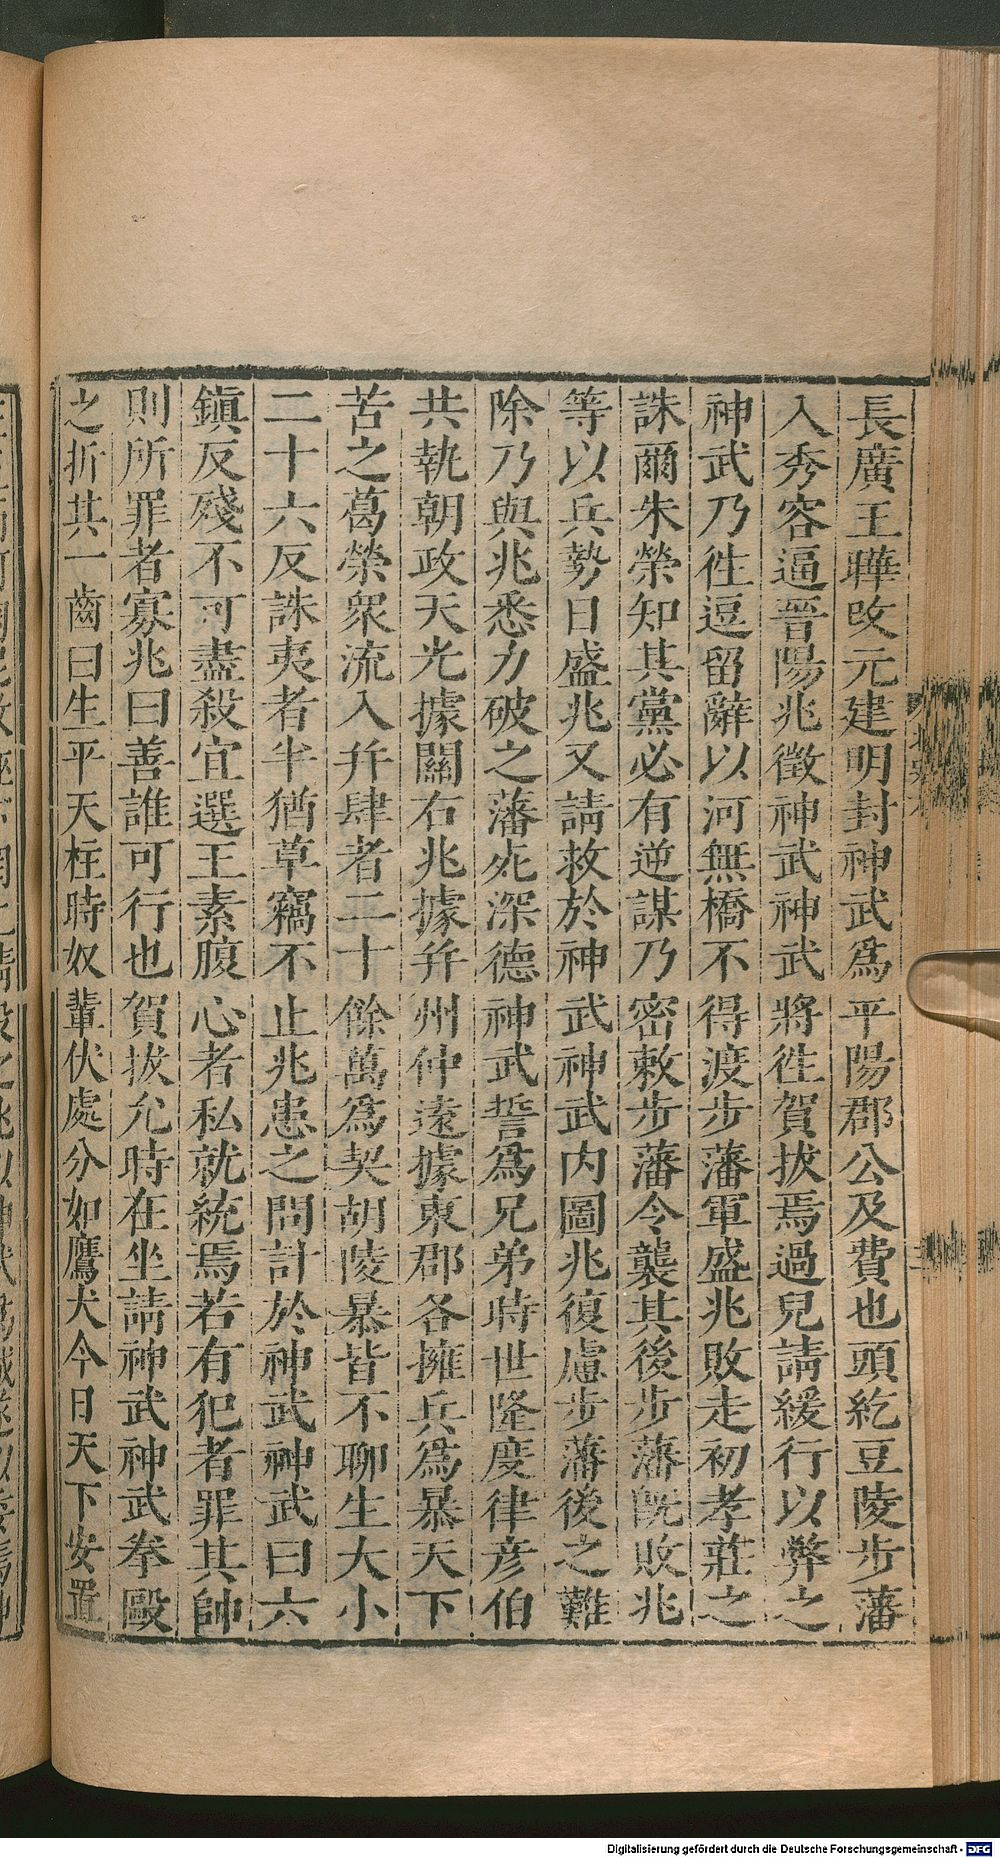 長廣王曄改元建明封神武爲平陽郡公及費也頭紇豆陵步藩
入秀容逼晉陽兆徵神武神武將徃賀拔焉過兒請緩行以弊之
神武乃徃逗留辭以河無橋不得渡步藩軍盛兆敗走初孝莊之
誅爾朱榮知其黨必有逆謀乃密敕步藩令襲其後步藩旣敗兆
等以兵勢日盛兆又請救於神武神武内圖兆復慮步藩後之難
除乃與兆悉力破之藩死深德神武誓爲兄弟時世隆度律彦伯
共執朝政天光據關右兆據幷州仲遠據東郡各擁兵爲暴天下
苦之葛榮衆流入幷肆者二十餘萬爲契胡陵暴皆不聊生大小
二十六反誅夷者半猶草竊不止兆患之問計於神武神武曰六
鎭反殘不可盡殺宜選王素腹心者私就統焉若有犯者罪其帥
則所罪者寡兆曰善誰可行也賀拔允時在坐請神武神武拳毆
之折其一齒曰生平天柱時奴輩伏處分如鷹犬今日天下安置
Digitalisierung gefördert durch die Deutsche Forschungsgemeinschaft - DFG